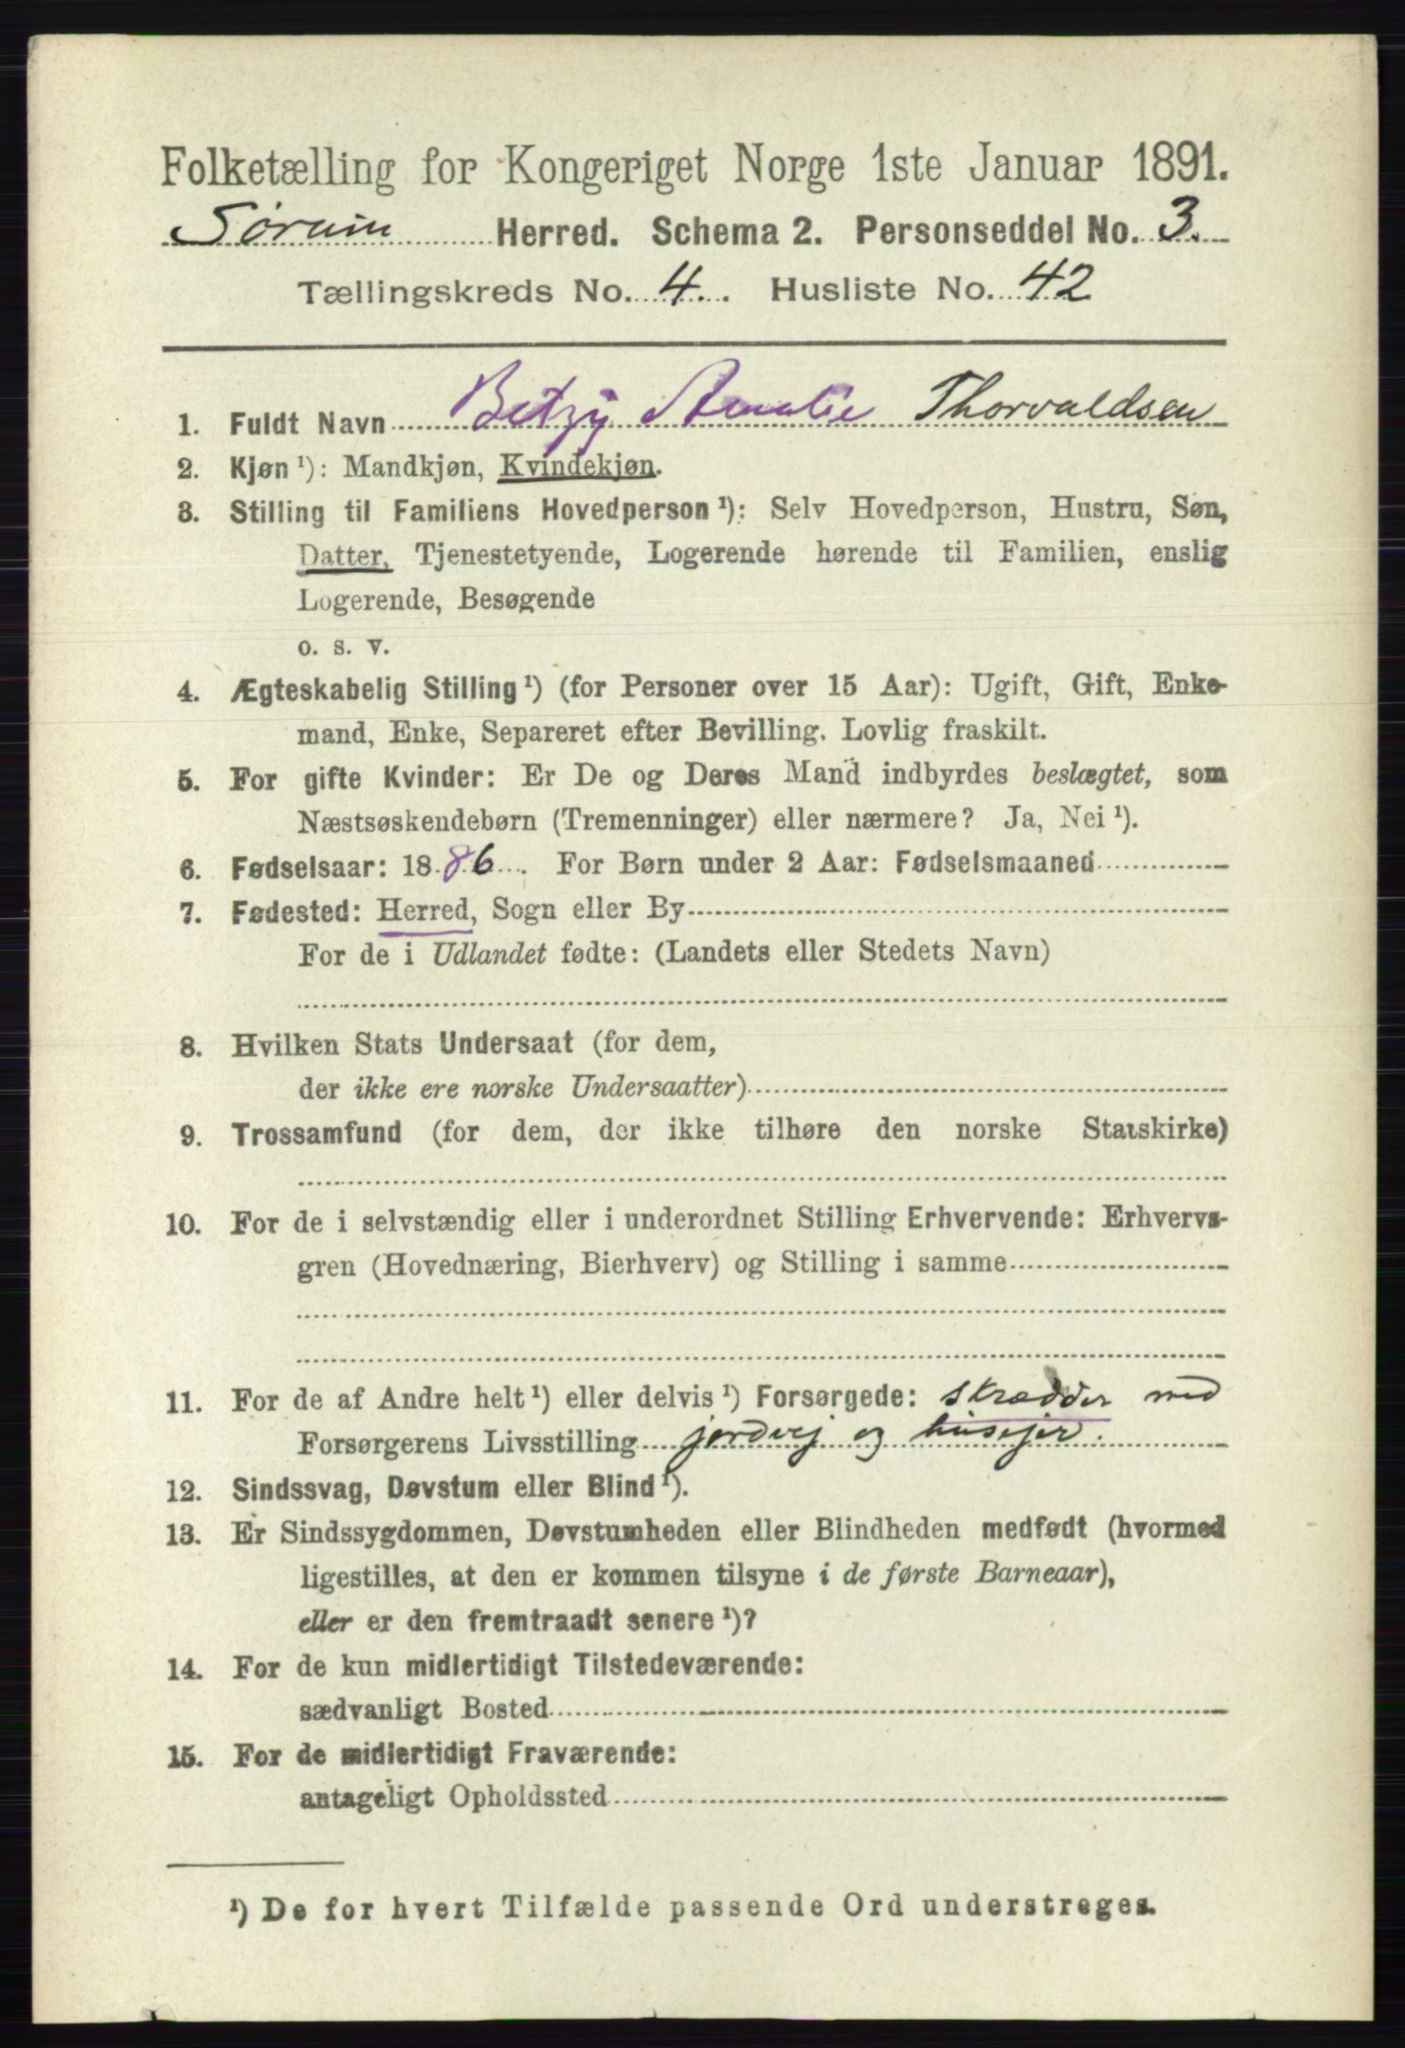 Folketælling for Kongeriget Norge 1ste Januar 1891.
Sørum Herred. Schema 2. Personseddel No. 3.
Tællingskreds No. 4. Husliste No. 42
1. Fuldt Navn Betzy Amalie Thorvaldsen
2. Kjøn ¹): Mandkjøn, Kvindekjøn.
3. Stilling til Familiens Hovedperson ¹): Selv Hovedperson, Hustru, Søn,
Datter, Tjenestetyende, Logerende hørende til Familien, enslig
Logerende, Besøgende
o. s. v.
4. Ægteskabelig Stilling ¹) (for Personer over 15 Aar): Ugift, Gift, Enke-
mand, Enke, Separeret efter Bevilling. Lovlig fraskilt.
5. For gifte Kvinder: Er De og Deres Mand indbyrdes beslægtet, som
Næstsøskendebørn (Tremenninger) eller nærmere? Ja, Nei ¹).
6. Fødselsaar: 1886. For Børn under 2 Aar: Fødselsmaaned
7. Fødested: Herred, Sogn eller By
For de i Udlandet fødte: (Landets eller Stedets Navn)
8. Hvilken Stats Undersaat (for dem,
der ikke ere norske Undersaatter)
9. Trossamfund (for dem, der ikke tilhøre den norske Statskirke)
10. For de i selvstændig eller i underordnet Stilling Erhvervende: Erhvervs-
gren (Hovednæring, Bierhverv) og Stilling i samme
11. For de af Andre helt ¹) eller delvis ¹) Forsørgede: skrædder med
Forsørgerens Livsstilling jordvej og husejer.
12. Sindssvag, Døvstum eller Blind ¹).
13. Er Sindssygdommen, Døvstumheden eller Blindheden medfødt (hvormed
ligestilles, at den er kommen tilsyne i de første Barneaar),
eller er den fremtraadt senere ¹)?
14. For de kun midlertidigt Tilstedeværende:
sædvanligt Bosted
15. For de midlertidigt Fraværende:
antageligt Opholdssted
¹) De for hvert Tilfælde passende Ord understreges.